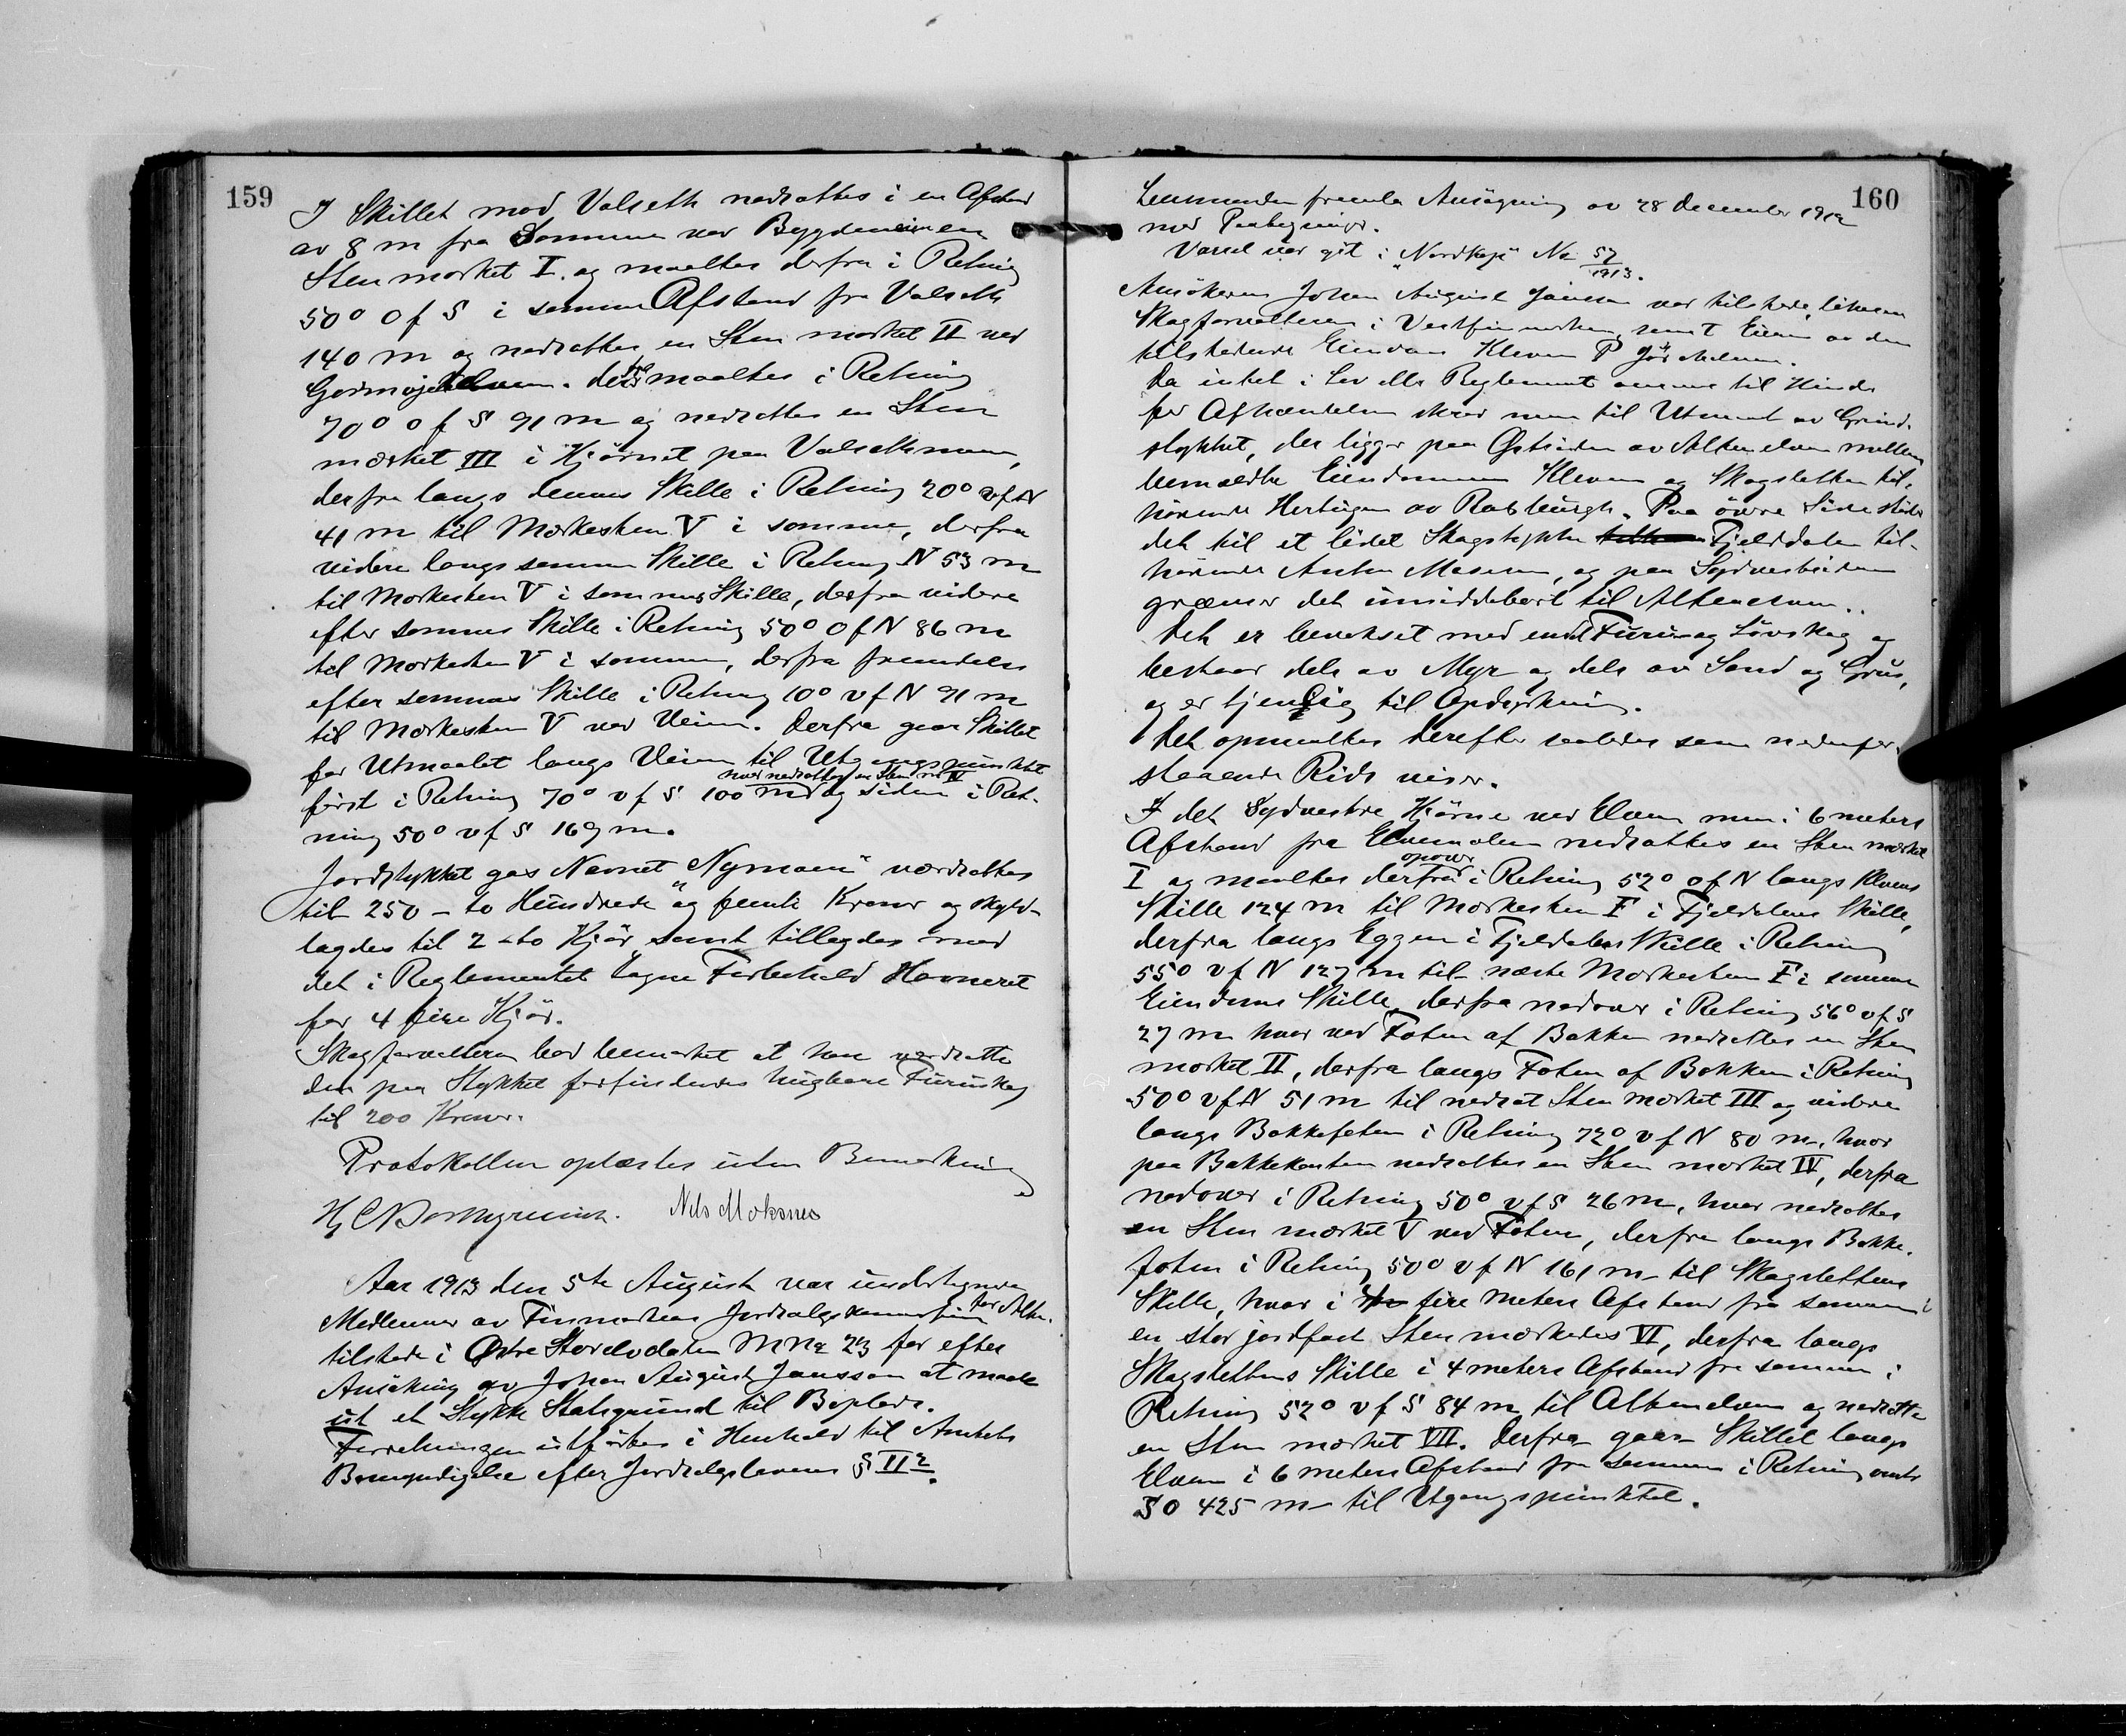 159
I Skillet mod Valseth nedsattes i en Afstand
av 8 m fra Somme ved Bygdeveien en
Sten mærket I. og maaltes derfra i Retning
50° O f S i samme Afstand fra Valseth
140 m og nedsattes en Sten mærket II ved
derfra maaltes i Retning
70° O f S 91 m og nedsattes en Sten
mærket III i Hjørnet paa
derfra langs dennes Skille i Retning 20° v f N
41 m til Mærkesten V i samme, derfra
videre langs samme Skille i Retning N 53 m
til Mærkesten V i sammes Skille, derfra videre
efter sammes Skille i Retning 50° O f N 86 m
til Mærkesten V i samme, derfra fremdeles
efter sammes Skille i Retning 10° v f N 91 m
til Mærkesten V ved Veien. Derfra gaar Skillet
for Utmaalet langs Veien til Utgangspunktet
hvor nedsattes en Sten m IV
først i Retning 70° v f S 100 m og siden i Ret-
ning 50° v f S 169 m.
Jordstykket gas Navnet "Nymoen" værdsattes
til 250 - to Hundrede og femti Kroner og skyld-
lagdes til 2 - to Kjør samt tillagdes med
det i Reglementet tagne Forbehold Havneret
for 4 fire Kjør.
Skogforvalteren bad bemærket at han værdsatte
den paa Stykket forfindende hugbare Furuskog
til 200 Kroner.
Protokollen oplæstes uten Bemerkning
Nils Moksnes
Aar 1913 den 5te August var undertegnede
Medlemmer av Finmarkens Jordsalgskommission for Alten
tilstede i Østre Storelvdalen M Nr 23 for efter
Ansøkning av Johan August Jansson at maale
ut et Stykke Statsgrund til Boplads.
Forretningen utføres i Henhold til Amtets
Bemyndigelse efter Jordsalgslovens § II 2.
160
Lensmanden fremla Ansøgning av 28 December 1912
med Paategninger.
Varsel var git i "Nordkap" No 57/1913.
Ansøkeren Johan August Jansson var tilstede, likesaa
Skogforvalteren i Vestfinmarken, samt Eieren av den
tilstødende Eiendom Kleven P
Da intet i Lov eller Reglement ansaaes til Hinder
for Afhændelsen skred man til Utmaal av Grund-
stykket, der ligger paa Østsiden av Altenelven mellem
bemeldte Eiendomme Kleven og Skogsletten til-
hørende Hertugen av Roxburgh. Paa øvre Side støder
det til et lidet Skogstykke Fjelddalen til-
hørende Anton Masern, og paa Sydvestsiden
grænser det umiddelbart til Altenelven.
Det er bevokset med endel Furu og Løvskog og
bestaar dels av Myr og dels av Sand og Grus,
og er tjenlig til Opdyrkning.
Det opmaaltes derefter saaledes som nedenfor-
staaende Rids viser.
I det Sydvestre Hjørne ved Elven men i 6 meters
Afstand fra Elvemælen nedsattes en Sten mærket
opover
I og maaltes derfra i Retning 52° O f N langs Klevens
Skille 124 m til Mærkesten F i Fjeldalens Skille,
derfra langs Eggen i Fjeldalens Skille i Retning
55° v f N 127 m til næste Mærkesten F i samme
Eiendoms Skille, derfra nedover i Retning 56° v f S
27 m hvor ved Foten af Bakken nedsattes en Sten
mærket II, derfra langs Foten af Bakken i Retning
50° v f N 51 m til nedsat Sten mærket III og videre
langs Bakkefoten i Retning 72° v f N 80 m, hvor
paa Bakkekanten nedsattes en Sten mærket IV, derfra
nedover i Retning 50° v f S 26 m, hvor nedsattes
en Sten mærket V ved Foten, derfra langs Bakke-
foten i Retning 50° v f N 161 m til Skogslettens
Skille, hvor i fire meters Afstand fra samme i
en stor jordfast Sten mærkedes VI, derfra langs
Skogslettens Skille i 4 meters Afstand fra samme i
Retning 52° v f S 84 m til Altenelven og nedsattes
en Sten mærket VII. Derfra gaar Skillet langs
Elven i 6 meters Afstand fra samme i Retning omtr
S O 425 m til Utgangspunktet.